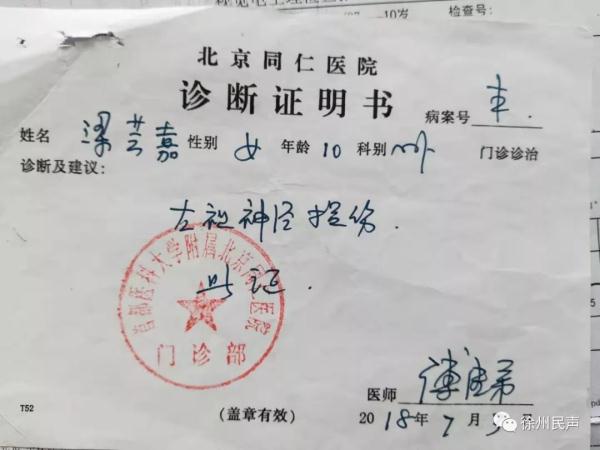 10岁 检查号:
北京同仁医院
诊断证明书
病案号
姓名 梁芸嘉 性别 女 年龄 10 科别 眼 门诊诊治
诊断及建议:
左视神经损伤.
此证
首都医科大学附属北京同仁医院
门诊部
医师
T52
(盖章有效)
2018年7月 日
徐州民声